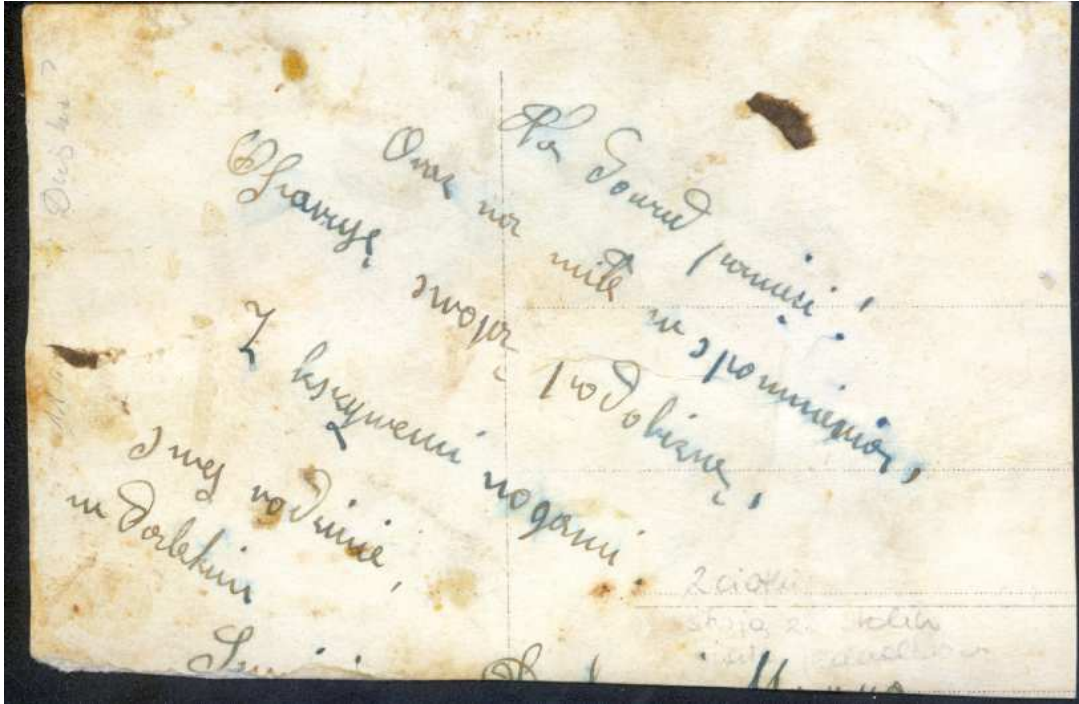 Na Dowód pamięci!
Oraz na miłe wspomnienia,
Ofiaruję swoją podobiznę,
Z kszywemi nogami.
swej rodzinie,
w dalekim
2 ciotki
stoją za